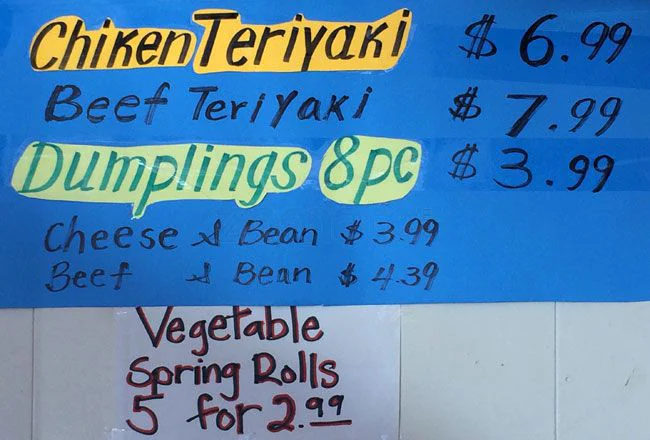 Chiken Teriyaki $ 6.99
Beef Teriyaki $ 7.99
Dumplings 8pc $ 3.99
Cheese & Bean $ 3.99
Beef & Bean $ 4.39
Vegetable
Spring Rolls
5 for 2.99